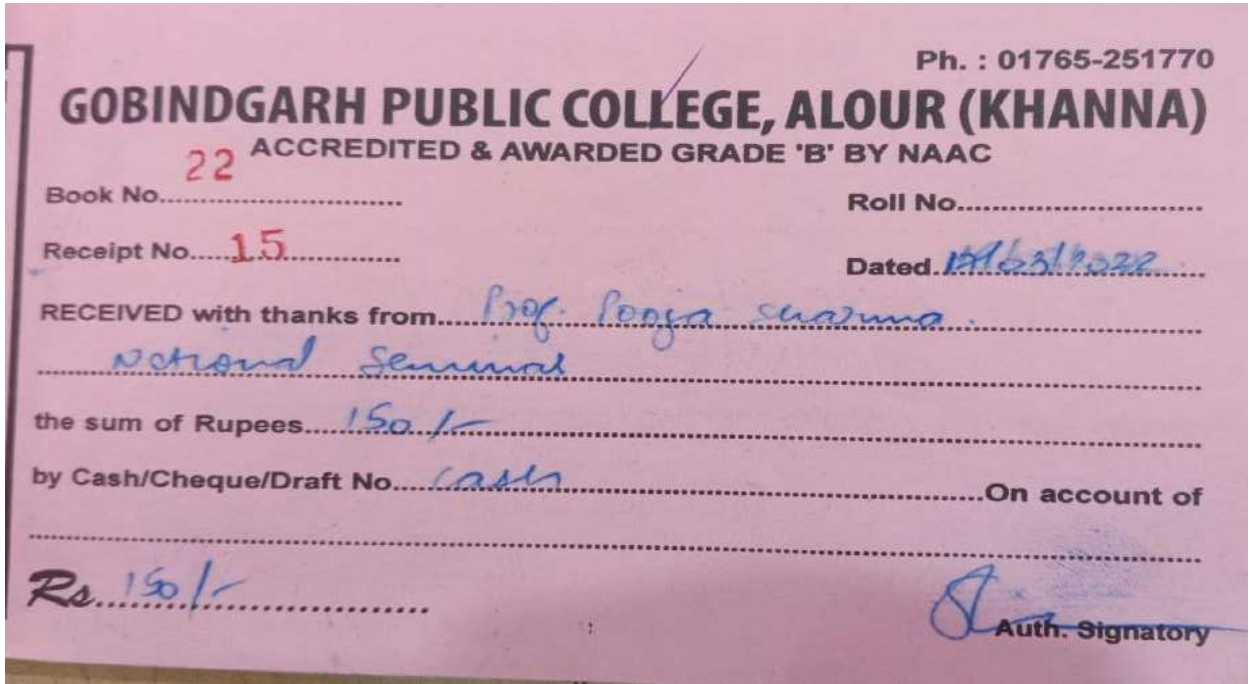 Ph. : 01765-251770
GOBINDGARH PUBLIC COLLEGE, ALOUR (KHANNA)
ACCREDITED & AWARDED GRADE 'B' BY NAAC
Book No. 22
Roll No.
Receipt No. 15
Dated /03/2022
RECEIVED with thanks from Prof. Pooja Sharma.
National Seminar
the sum of Rupees 150/-
by Cash/Cheque/Draft No. Cash On account of
Rs. 150/-
Auth. Signatory